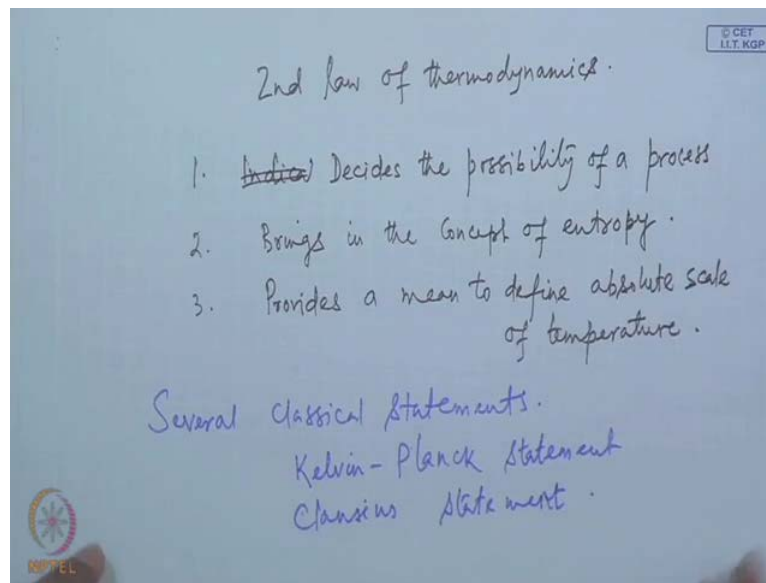 © CET
I.I.T. KGP
2nd law of thermodynamics.
1. Indica Decides the possibility of a process
2. Brings in the Concept of entropy.
3. Provides a mean to define absolute scale
of temperature.
Several Classical Statements.
Kelvin-Planck Statement
Clausius Statement.
NPTEL